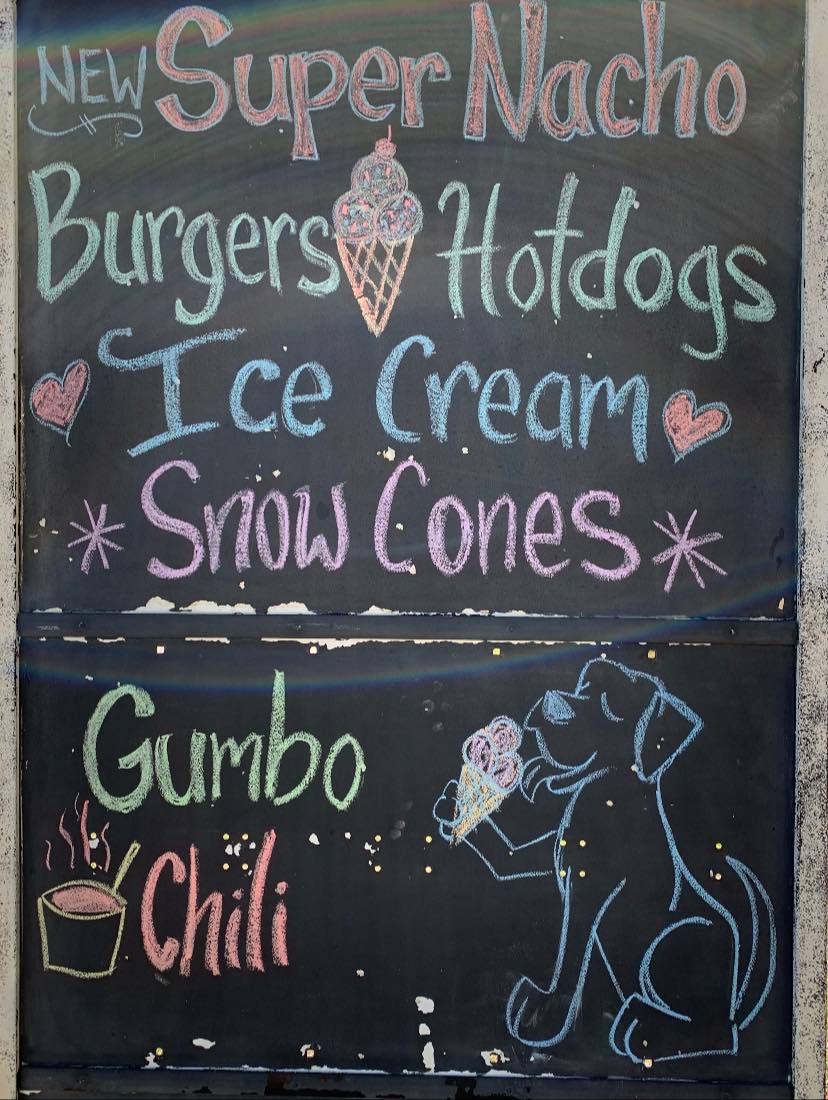 NEW Super Nacho
Burgers Hotdogs
Ice Cream
Snow Cones
Gumbo
Chili